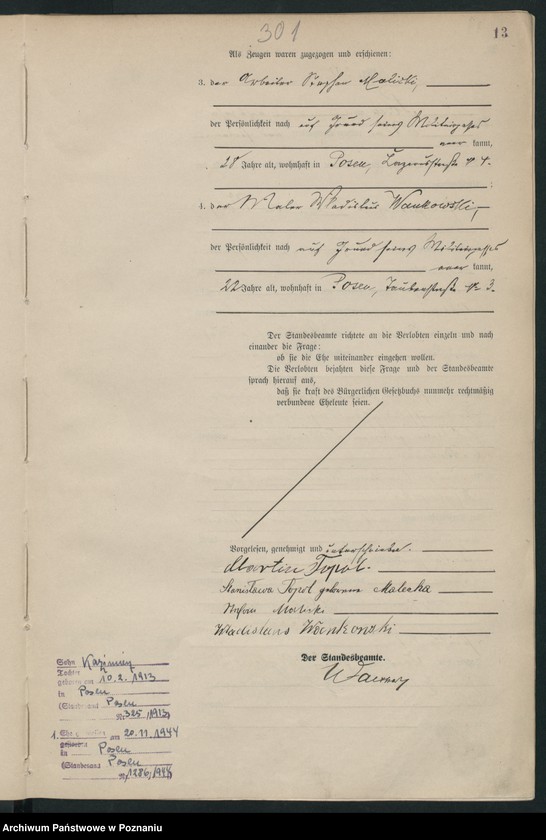 301
13
Als Zeugen waren zugezogen und erschienen:
3. der Arbeiter Stephan Malecki,
der Persönlichkeit nach auf Grund seines Militärpasses
kannt,
28 Jahre alt, wohnhaft in Posen, Lazarusstraße № 4.
;
4. der Maler Wladislaus Wankowski,
der Persönlichkeit nach auf Grund seines Militärpasses
kannt,
22 Jahre alt, wohnhaft in Posen, Taubenstraße № 3.
Der Standesbeamte richtete an die Verlobten einzeln und nach
einander die Frage:
ob sie die Ehe miteinander eingehen wollen.
Die Verlobten bejahten diese Frage und der Standesbeamte
sprach hierauf aus,
daß sie kraft des Bürgerlichen Gesetzbuchs nunmehr rechtmäßig
verbundene Eheleute seien.
Vorgelesen, genehmigt und unterschrieben.
Martin Topol.
Stanisława Topol geborene Malecka
Stefan Malecki
Wladislaus Wankowski
Der Standesbeamte.
Sohn Kazimir
Tochter
geboren am 10.2.1913
in Posen
(Standesamt Posen
Nr. 325/1913)
1. Ehe am 20.11.1944
in Posen
(Standesamt Posen
Nr. 1286/1944)
Archiwum Państwowe w Poznaniu